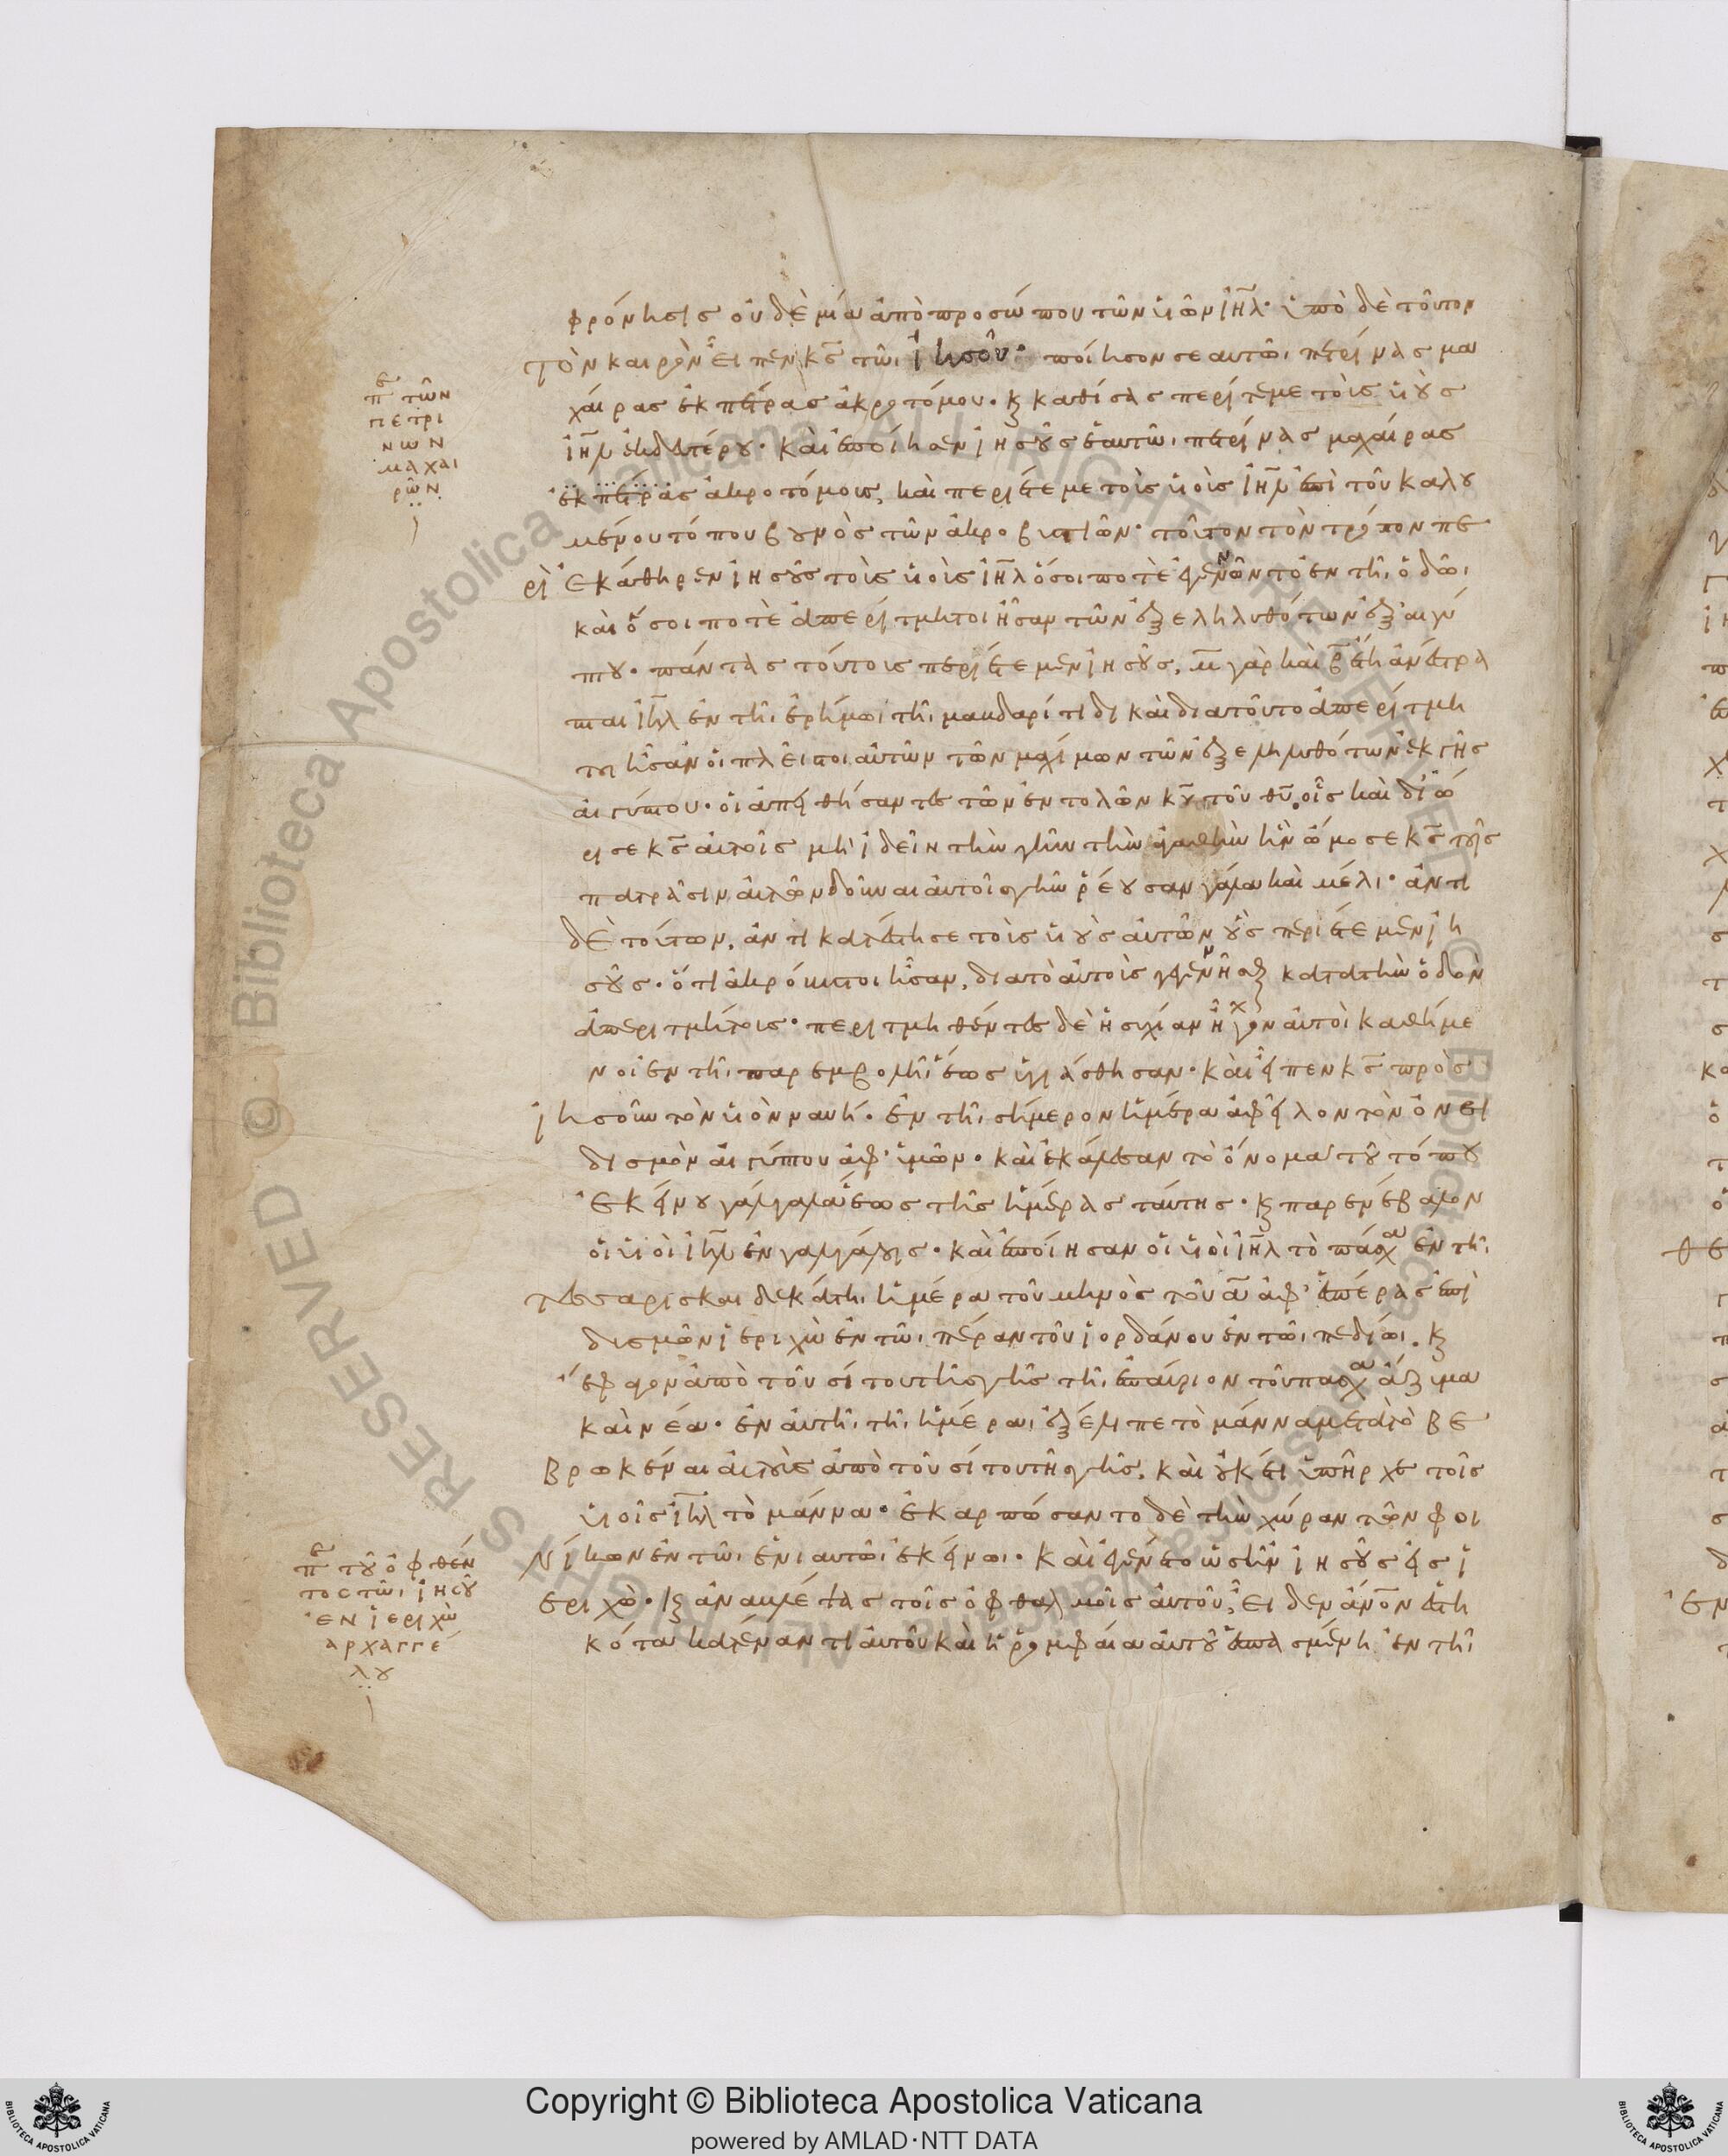 φρόνησις οὐδὲ μία ἀπὸ προσώπου τῶν υἱῶν ἰη̅λ· ὑπὸ δὲ τοῦτον
τὸν καιρὸν εἶπεν κ̅ς̅ τῶ ἰησοῦ· ποίησον σεαυτῶ πετρίνας μα
χαίρας ἐκ πέτρας ἀκροτόμου· κ̀ καθίσας περίτεμε τοὺς υἱοὺς
ἰη̅λ ἐκ δευτέρου· καὶ ἐποίησεν ἰησοῦς ἑαυτῶ πετρίνας μαχαίρας
ἐκ πέτρας ἀκροτόμους, καὶ περιέτεμε τοὺς υἱοὺς ἰη̅λ ἐπὶ τοῦ καλου
μένου τόπου βουνὸς τῶν ἀκροβυστιῶν· τοῦτον τὸν τρόπον πε
ριεκάθηρεν ἰησοῦς τοὺς υἱοὺς ἰη̅λ ὅσοι ποτὲ ἐγένοντο ἐν τῆ ὁδῶ
καὶ ὅσοι ποτὲ ἀπερίτμητοι ἦσαν τῶν ἐξεληλυθότων ἐξ αἰγύ
πτου· πάντας τούτους περιέτεμεν ἰησοῦς, μ̅ γὰρ καὶ β̅ ἔτη ἀνέστρα
πται ἰη̅λ ἐν τῆ ἐρήμω τῆ μαυδαρίτιδι καὶ διατοῦτο ἀπερίτμη
τοι ἦσαν οἱ πλεῖστοι αὐτῶν τῶν μαχίμων τῶν ἐξεληλυθότων ἐκ γῆς
αἰγύπτου· οἱ ἀπειθήσαντες τῶν ἐντολῶν κ̅υ̅ τοῦ θ̅υ̅. οἷς καὶ διώ
ρισε κ̅ς̅ αὐτοῖς μὴ ἰδεῖν τὴν γῆν τὴν ἀγαθὴν ἣν ὤμοσε κ̅ς̅ τοῖς
πατράσιν αὐτῶν δοῦναι αὐτοῖς γῆν ῥέουσαν γάλα καὶ μέλι· ἀντὶ
δὲ τούτων, ἀντικατέστησε τοὺς υἱοὺς αὐτῶν οὓς περιέτεμεν ἰη
σοῦς· ὅτι ἀκρόβυστοι ἦσαν, διατὸ αὐτοὺς γεγεννῆσθαι κατα τὴν ὁδὸν
ἀπεριτμήτους· περιτμηθέντες δὲ ἡσυχίαν ἦχον αὐτοὶ καθήμε
νοι ἐν τῆ παρεμβολῆ ἕως ὑγιάσθησαν· καὶ εἶπεν κ̅ς̅ πρὸς
ἰησοῦν τὸν υἱὸν ναυή· ἐν τῆ σήμερον ἡμέρα ἀφεῖλον τὸν ὀνει
δισμὸν αἰγύπτου ἀφ' ὑμῶν· καὶ ἐκάλεσαν τὸ ὄνομα τοῦ τόπου
ἐκείνου γάλγαλα ἕως τῆς ἡμέρας ταύτης· κ̀ παρενέβαλον
οἱ υἱοὶ ἰη̅λ ἐν γαλγάλοις· καὶ ἐποίησαν οἱ υἱοὶ ἰη̅λ τὸ πάσχα ἐν τῆ
τεσσαρισκαιδεκάτη ἡμέρα τοῦ μηνὸς τοῦ α̅ ἀφ' ἑσπέρας ἐπὶ
δυσμῶν ἰεριχὼ ἐν τῶ πέραν τοῦ ἰορδάνου ἐν τῶ πεδίω. κ̀
ἔφαγον ἀπὸ τοῦ σίτου τῆς γῆς τῆ ἐπαύριον τοῦ πασχα ἄζυμα
καὶ νέα· ἐν αὐτῆ τῆ ἡμέρα ἐξέλιπε τὸ μάννα μετὰ τὸ βε
βρωκέναι αὐτοὺς ἀπὸ τοῦ σίτου τῆς γῆς. καὶ οὐκέτι ὑπῆρχε τοῖς
υἱοῖς ἰη̅λ τὸ μάννα· ἐκαρπώσαντο δὲ τὴν χώραν τῶν φοι
νίκων ἐν τῶ ἐνιαυτῶ ἐκείνω· καὶ ἐγένετο ὡς ἦν ἰησοῦς εἰς ἰ
εριχὼ· κ̀ ἀναβλέψας τοῖς ὀφθαλμοῖς αὐτοῦ, εἶδεν ἄ̅ν̅ο̅ν̅ ἑστη
κότα κατέναντι αὐτοῦ καὶ ἡ ῥομφαία αὐτοῦ ἐσπασμένη ἐν τῆ
πε τῶν
πετρι
νων
μαχαι
ρῶν
πε τοῦ ὀφθέν
τος τῶ ἰησοῦ
ἐν ἰεριχὼ
αρχαγγέ
λου
Copyright © Biblioteca Apostolica Vaticana
powered by AMLAD·NTT DATA
BIBLIOTECA APOSTOLICA VATICANA
BIBLIOTECA APOSTOLICA VATICANA